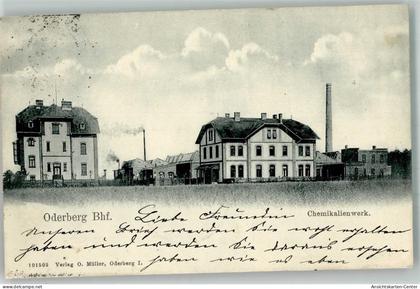 Oderberg Bhf.
Chemikalienwerk.
Liebe Freundin
Unseren Brief werden Sie wohl erhalten
haben und werden Sie daraus ersehen
haben wie es eben
101505 Verlag O. Müller, Oderberg I.
Ansichtskarten-Center